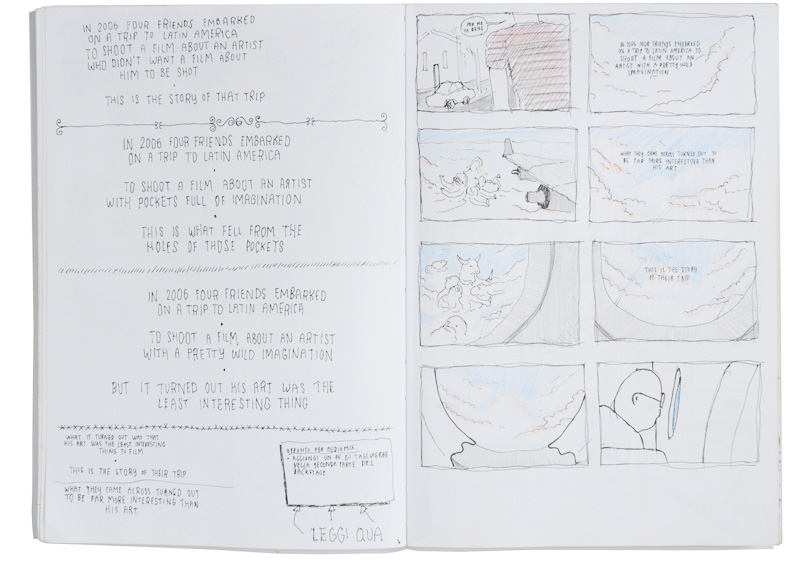 IN 2006 FOUR FRIENDS EMBARKED
ON A TRIP TO LATIN AMERICA
TO SHOOT A FILM ABOUT AN ARTIST
WHO DIDN'T WANT A FILM ABOUT
HIM TO BE SHOT
THIS IS THE STORY OF THAT TRIP
IN 2006 FOUR FRIENDS EMBARKED
ON A TRIP TO LATIN AMERICA
TO SHOOT A FILM ABOUT AN ARTIST
WITH POCKETS FULL OF IMAGINATION
THIS IS WHAT FELL FROM THE
HOLES OF THOSE POCKETS
IN 2006 FOUR FRIENDS EMBARKED
ON A TRIP TO LATIN AMERICA
TO SHOOT A FILM ABOUT AN ARTIST
WITH A PRETTY WILD IMAGINATION
BUT IT TURNED OUT HIS ART WAS THE
LEAST INTERESTING THING
WHAT IT TURNED OUT WAS THAT
HIS ART WAS THE LEAST INTERESTING
THING TO FILM
THIS IS THE STORY OF THEIR TRIP
WHAT THEY CAME ACROSS TURNED OUT
TO BE FAR MORE INTERESTING THAN
HIS ART
APPUNTO PER AUDIOMIX:
- AGGIUNGI UN PO DI TAGLIAERBE
NELLA SECONDA PARTE DEL
BACKSTAGE
LEGGI QUA
IN 2006 FOUR FRIENDS EMBARKED
ON A TRIP TO LATIN AMERICA TO
SHOOT A FILM ABOUT AN
ARTIST WITH A PRETTY WILD
IMAGINATION
WHAT THEY CAME ACROSS TURNED OUT TO
BE FAR MORE INTERESTING THAN
HIS ART
THIS IS THE STORY
OF THEIR TRIP